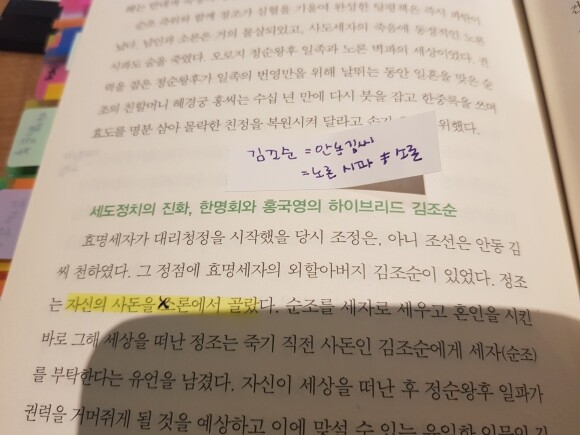 순조 즉위와 함께 정조가 심혈을 기울여 완성한 탕평책은 즉시 파탄이
났다. 남인과 소론은 거의 몰살되었고, 사도세자의 죽음에 동정적인 노론
시파도 숨을 죽였다. 오로지 정순왕후 일족과 노론 벽파의 세상이었다. 권
력을 잡은 정순왕후가 일족의 번영만을 위해 날뛰는 동안 일흔을 맞은 순
조의 친할머니 혜경궁 홍씨는 수십 년 만에 다시 붓을 잡고 한중록을 쓰며
효도를 명분 삼아 몰락한 친정을 복원시켜 달라고 손자 위했다.
김조순 = 안동김씨
= 노론 시파 ≠ 소론
세도정치의 진화, 한명회와 홍국영의 하이브리드 김조순
효명세자가 대리청정을 시작했을 당시 조정은, 아니 조선은 안동 김
씨 천하였다. 그 정점에 효명세자의 외할아버지 김조순이 있었다. 정조
는 자신의 사돈을 소론에서 골랐다. 순조를 세자로 세우고 혼인을 시킨
바로 그해 세상을 떠난 정조는 죽기 직전 사돈인 김조순에게 세자(순조)
를 부탁한다는 유언을 남겼다. 자신이 세상을 떠난 후 정순왕후 일파가
권력을 거머쥐게 될 것을 예상하고 이에 맞설 수 있는 유일한